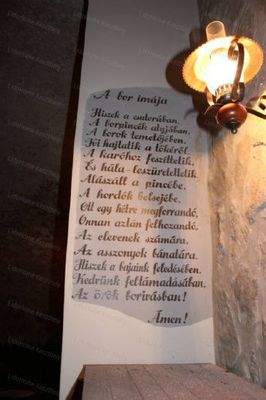 A bor imája
Hiszek a csutorában,
A borpincék atyjában,
A borok temetőjében.
Ki hajtatik a tőkéről
A karóhoz feszíttetik,
És hála - leszűrettetik
Alászáll a pincébe,
A hordók belsejébe.
Ott egy hétre megforrandó,
Onnan aztán felhozandó,
Az elevenek számára,
Az asszonyok bánatára.
Hiszek a bajaink feledésében,
Kedvünk feltámadásában.
Az örök borivásban!
Ámen!